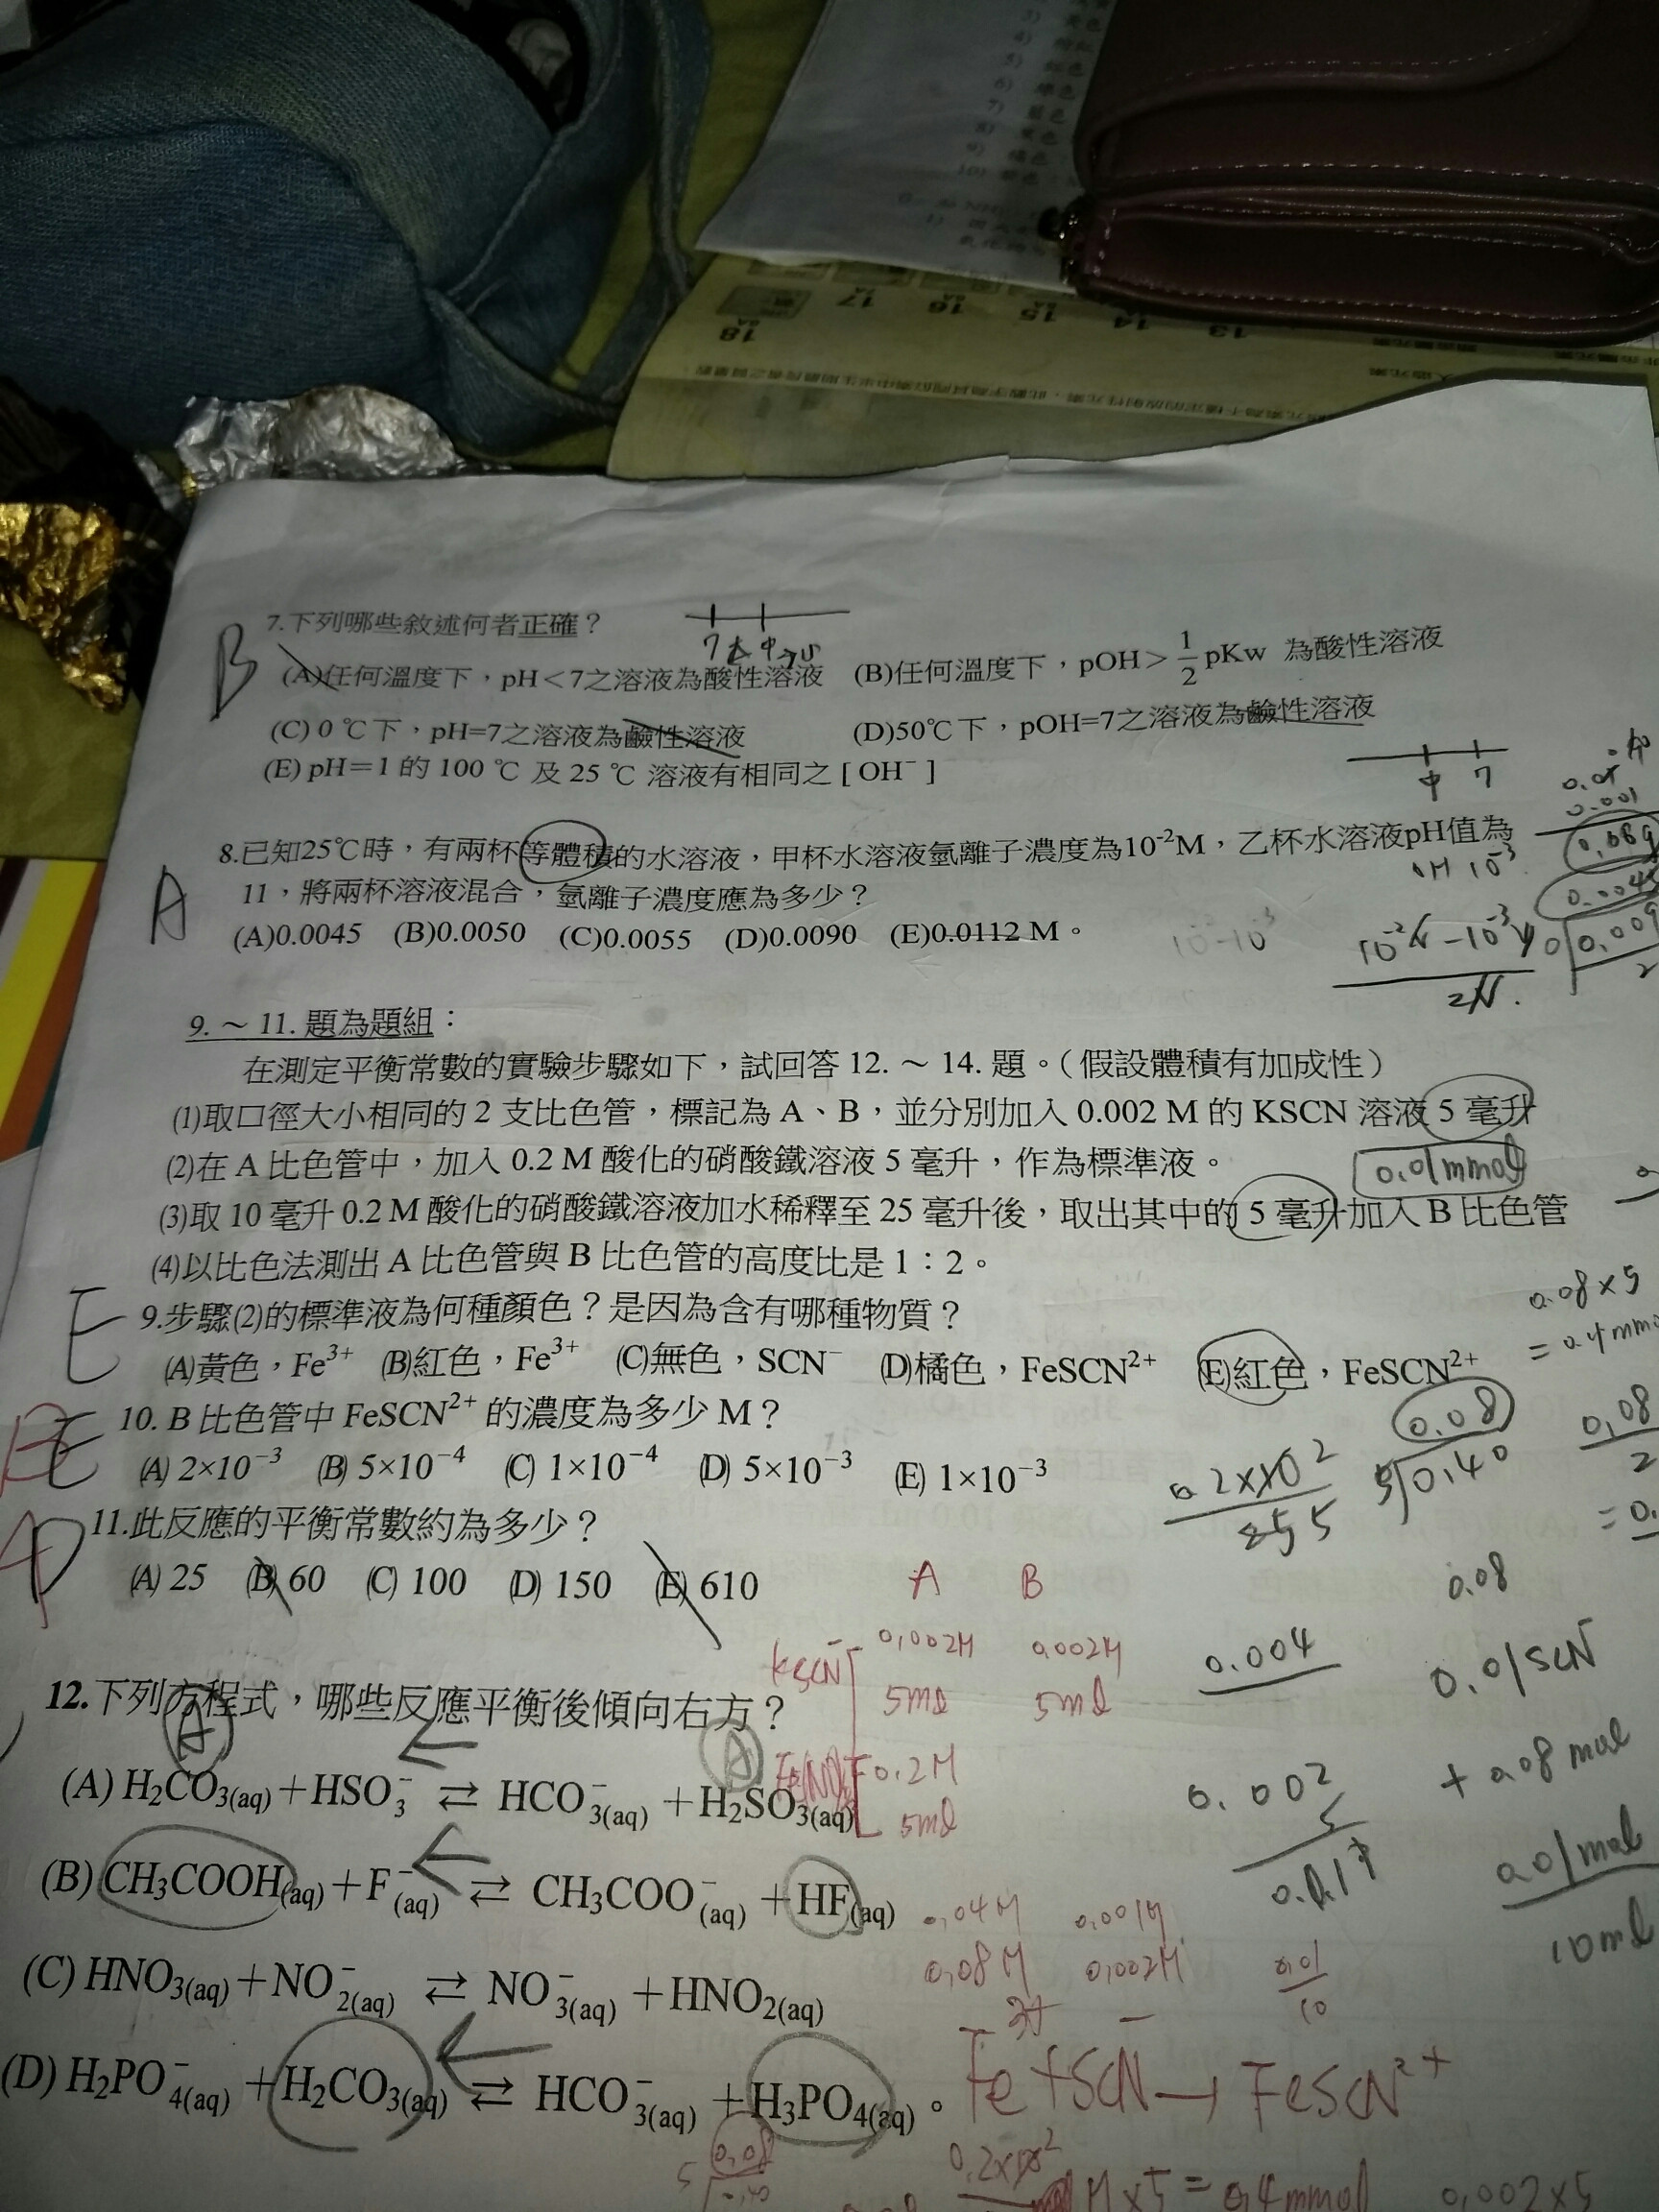 3)
4)
5)
6)
7)
8)
9)
10)
18 17 16 15 14 13
7.下列哪些敘述何者正確？
B
(A)任何溫度下，pH＜7之溶液為酸性溶液 (B)任何溫度下，pOH＞1/2 pKw 為酸性溶液
(C) 0 ℃下，pH=7之溶液為鹼性溶液 (D)50℃下，pOH=7之溶液為鹼性溶液
(E) pH＝1 的 100 ℃ 及 25 ℃ 溶液有相同之 [ OH⁻ ]
中 7
0.001
8.已知25℃時，有兩杯等體積的水溶液，甲杯水溶液氫離子濃度為10⁻²M，乙杯水溶液pH值為
11，將兩杯溶液混合，氫離子濃度應為多少？
A
(A)0.0045 (B)0.0050 (C)0.0055 (D)0.0090 (E)0.0112 M。
10⁻²-10⁻³
9. ～ 11. 題為題組：
在測定平衡常數的實驗步驟如下，試回答 12. ～ 14. 題。（假設體積有加成性）
(1)取口徑大小相同的 2 支比色管，標記為 A、B，並分別加入 0.002 M 的 KSCN 溶液 5 毫升
(2)在 A 比色管中，加入 0.2 M 酸化的硝酸鐵溶液 5 毫升，作為標準液。
0.01mmol
(3)取 10 毫升 0.2 M 酸化的硝酸鐵溶液加水稀釋至 25 毫升後，取出其中的 5 毫升加入 B 比色管
(4)以比色法測出 A 比色管與 B 比色管的高度比是 1：2。
0.08×5
E
9.步驟(2)的標準液為何種顏色？是因為含有哪種物質？
(A)黃色，Fe³⁺ (B)紅色，Fe³⁺ (C)無色，SCN⁻ (D)橘色，FeSCN²⁺ (E)紅色，FeSCN²⁺
E
10. B 比色管中 FeSCN²⁺ 的濃度為多少 M？
0.08
(A) 2×10⁻³ (B) 5×10⁻⁴ (C) 1×10⁻⁴ (D) 5×10⁻³ (E) 1×10⁻³
5 0.40
0.08
2
D
11.此反應的平衡常數約為多少？
(A) 25 (B) 60 (C) 100 (D) 150 (E) 610
A B
0.08
KSCN 0.002M 0.002M
5ml 5ml
0.004
0.01 SCN⁻
12.下列方程式，哪些反應平衡後傾向右方？
A
(A) H₂CO₃(aq)＋HSO₃⁻ ⇄ HCO₃⁻(aq)＋H₂SO₃(aq)
0.2M
5ml
0.002
5
+ 0.08 mol
0.01mol
10ml
(B) CH₃COOH(aq)＋F⁻(aq) ⇄ CH₃COO⁻(aq)＋HF(aq)
0.04M 0.001M
0.08M 0.002M
0.01
10
(C) HNO₃(aq)＋NO₂⁻(aq) ⇄ NO₃⁻(aq)＋HNO₂(aq)
(D) H₂PO₄⁻(aq)＋H₂CO₃(aq) ⇄ HCO₃⁻(aq)＋H₃PO₄(aq)。
Fe³⁺+SCN⁻→FeSCN²⁺
0.08
5
M×5=0.4mmol
0.002×5